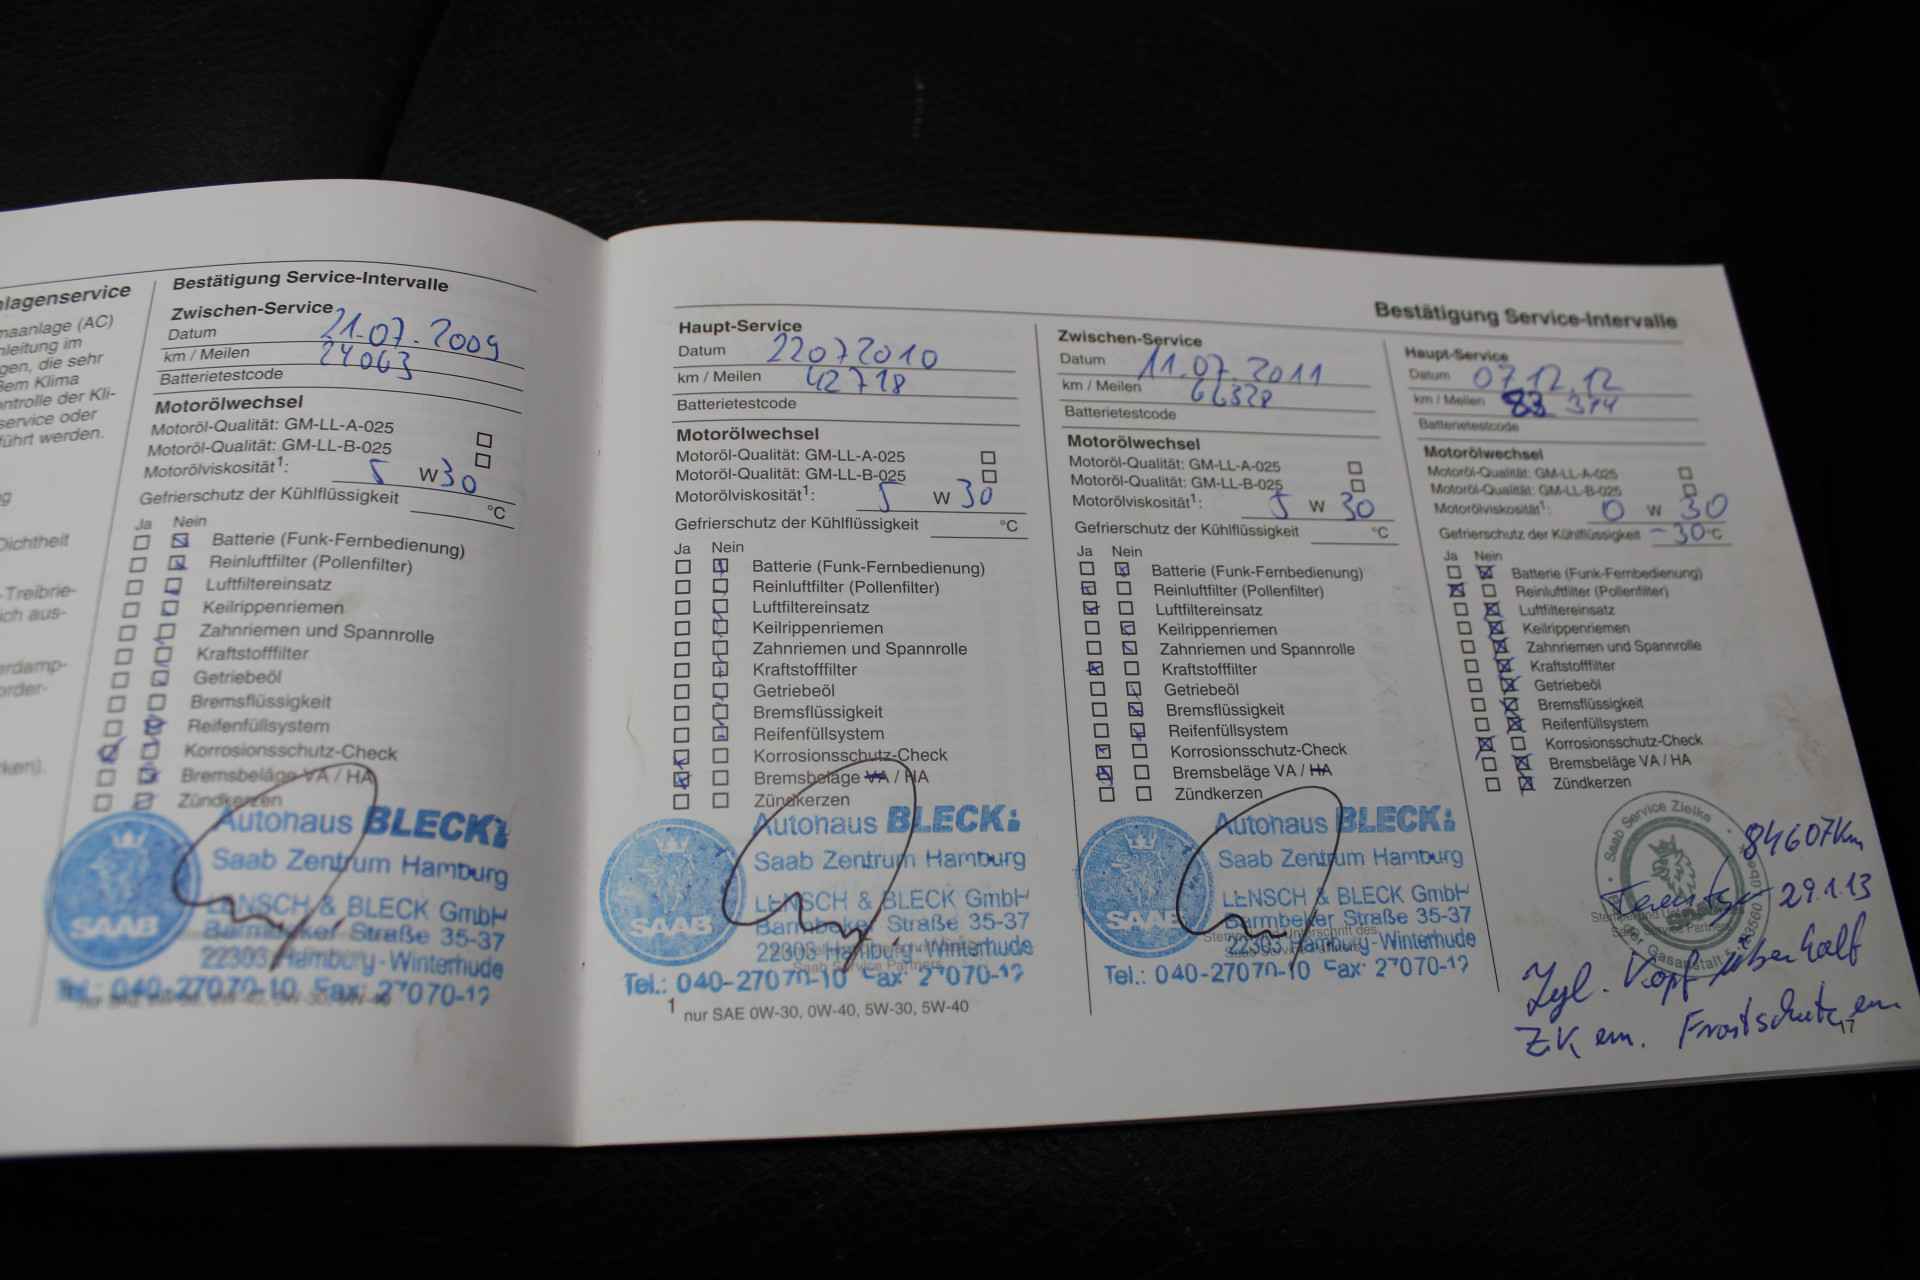 nlagenservice
maanlage (AC)
nleitung im
gen, die sehr
dem Klima
ontrolle der Kli-
service oder
führt werden.
ng
Dichtheit
-Treibrie-
ich aus-
erdamp-
order-
rken).
Bestätigung Service-Intervalle
Zwischen-Service
Datum 21.07.2009
km / Meilen 24063
Batterietestcode
Motorölwechsel
Motoröl-Qualität: GM-LL-A-025
Motoröl-Qualität: GM-LL-B-025
Motorölviskosität1: 5 W 30
Gefrierschutz der Kühlflüssigkeit °C
Ja Nein
Batterie (Funk-Fernbedienung)
Reinluftfilter (Pollenfilter)
Luftfiltereinsatz
Keilrippenriemen
Zahnriemen und Spannrolle
Kraftstofffilter
Getriebeöl
Bremsflüssigkeit
Reifenfüllsystem
Korrosionsschutz-Check
Bremsbeläge VA / HA
Zündkerzen
Autohaus BLECK
Saab Zentrum Hamburg
LENSCH & BLECK GmbH
SAAB
Barmbeker Straße 35-37
22303 Hamburg-Winterhude
Tel.: 040-27070-10 Fax: 27070-12
Bestätigung Service-Intervalle
Haupt-Service
Datum 22072010
km / Meilen 42718
Batterietestcode
Motorölwechsel
Motoröl-Qualität: GM-LL-A-025
Motoröl-Qualität: GM-LL-B-025
Motorölviskosität1: 5 W 30
Gefrierschutz der Kühlflüssigkeit °C
Ja Nein
Batterie (Funk-Fernbedienung)
Reinluftfilter (Pollenfilter)
Luftfiltereinsatz
Keilrippenriemen
Zahnriemen und Spannrolle
Kraftstofffilter
Getriebeöl
Bremsflüssigkeit
Reifenfüllsystem
Korrosionsschutz-Check
Bremsbeläge VA / HA
Zündkerzen
Autohaus BLECK
Saab Zentrum Hamburg
LENSCH & BLECK GmbH
SAAB
Barmbeker Straße 35-37
22303 Hamburg-Winterhude
Saab Service Partners
Tel.: 040-27070-10 Fax: 27070-12
1 nur SAE 0W-30, 0W-40, 5W-30, 5W-40
Zwischen-Service
Datum 11.07.2011
km / Meilen 66328
Batterietestcode
Motorölwechsel
Motoröl-Qualität: GM-LL-A-025
Motoröl-Qualität: GM-LL-B-025
Motorölviskosität1: 5 W 30
Gefrierschutz der Kühlflüssigkeit °C
Ja Nein
Batterie (Funk-Fernbedienung)
Reinluftfilter (Pollenfilter)
Luftfiltereinsatz
Keilrippenriemen
Zahnriemen und Spannrolle
Kraftstofffilter
Getriebeöl
Bremsflüssigkeit
Reifenfüllsystem
Korrosionsschutz-Check
Bremsbeläge VA / HA
Zündkerzen
Autohaus BLECK
Saab Zentrum Hamburg
LENSCH & BLECK GmbH
SAAB
Barmbeker Straße 35-37
22303 Hamburg-Winterhude
Tel.: 040-27070-10 Fax: 27070-12
Haupt-Service
Datum 07.12.12
km / Meilen 83 314
Batterietestcode
Motorölwechsel
Motoröl-Qualität: GM-LL-A-025
Motoröl-Qualität: GM-LL-B-025
Motorölviskosität1: 0 W 30
Gefrierschutz der Kühlflüssigkeit -30 °C
Ja Nein
Batterie (Funk-Fernbedienung)
Reinluftfilter (Pollenfilter)
Luftfiltereinsatz
Keilrippenriemen
Zahnriemen und Spannrolle
Kraftstofffilter
Getriebeöl
Bremsflüssigkeit
Reifenfüllsystem
Korrosionsschutz-Check
Bremsbeläge VA / HA
Zündkerzen
Saab Service Zielke
84607Km
29.1.13
Zyl. Kopf überholt
ZK ern. Frostschutz ern
17